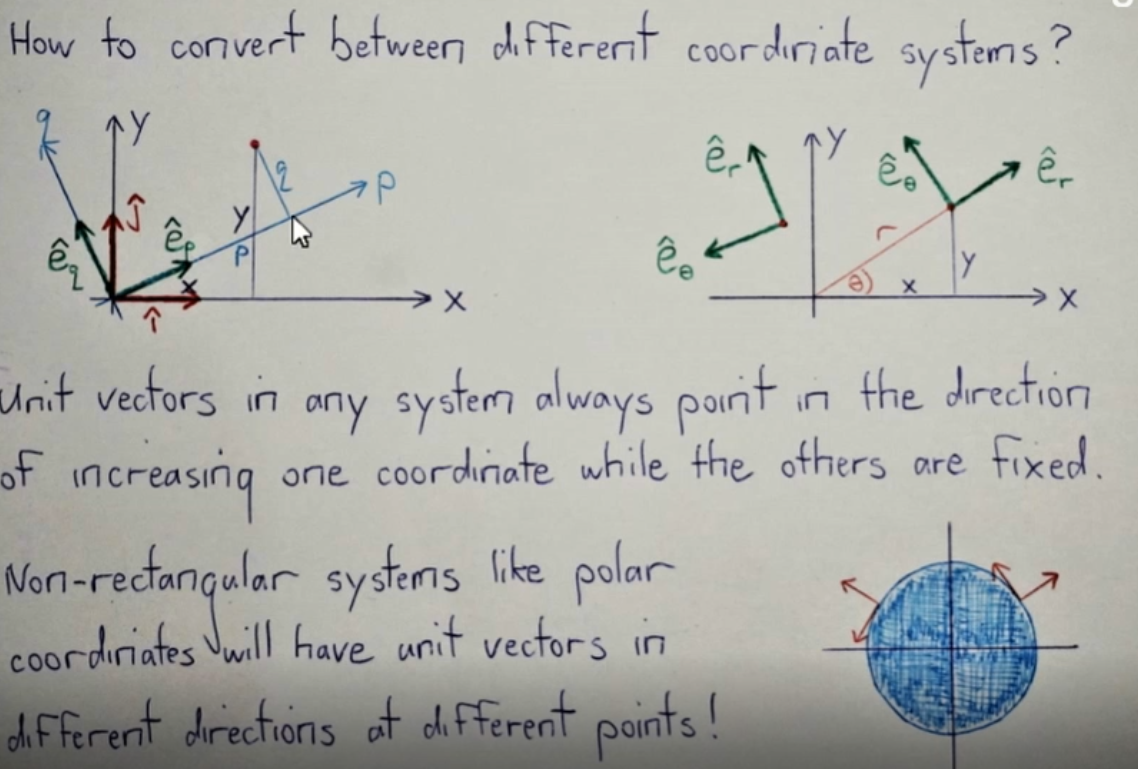 How to convert between different coordinate systems?
q
y
ĵ
ê_q
ê_p
x
î
y
p
q
p
x
ê_r
ê_θ
y
ê_θ
ê_r
r
θ
x
y
x
Unit vectors in any system always point in the direction
of increasing one coordinate while the others are fixed.
Non-rectangular systems like polar
coordinates will have unit vectors in
different directions at different points!